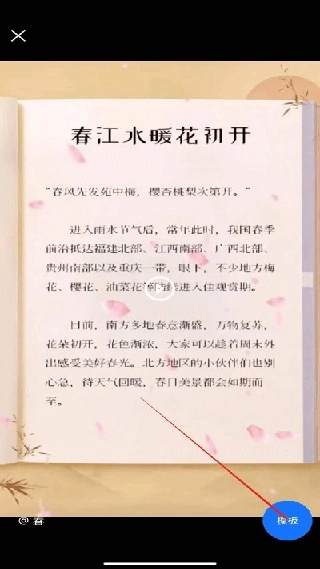 春江水暖花初开
“春风先发苑中梅，樱杏桃梨次第开。”
进入雨水节气后，常年此时，我国春季
前沿抵达福建北部、江西南部、广西北部、
贵州南部以及重庆一带，眼下，不少地方梅
花、樱花、油菜花 进入佳观赏期。
日前，南方多地春意渐盛，万物复苏，
花朵初开，花色渐浓，大家可以趁着周末外
出感受美好春光。北方地区的小伙伴们也别
心急，待天气回暖，春日美景都会如期而
至。
@ 春
模板